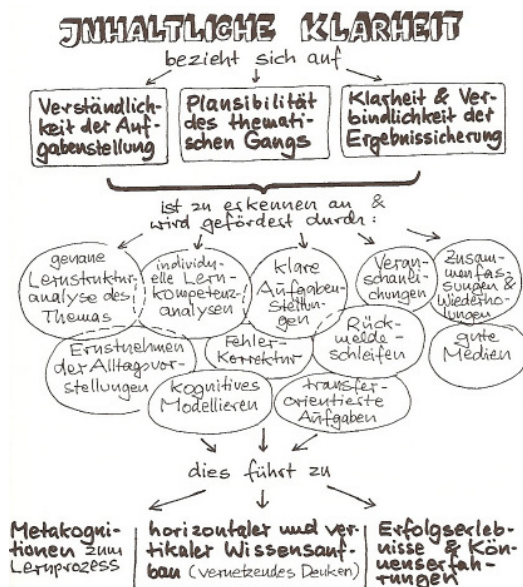 INHALTLICHE KLARHEIT
bezieht sich auf
Verständlich-
keit der Auf-
gabenstellung
Plausibilität
des themati-
schen Gangs
Klarheit & Ver-
bindlichkeit der
Ergebnissicherung
ist zu erkennen an &
wird gefördert durch:
genaue
Lernstruktur-
analyse des
Themas
individu-
elle Lern-
kompetenz-
analysen
klare
Aufgaben-
stellun-
gen
Veran-
schauli-
chungen
Zusam-
menfas-
sungen &
Wiederho-
lungen
Ernstnehmen
der Alltagsvor-
stellungen
Fehler-
korrektur
Rück-
melde-
schleifen
gute
Medien
kognitives
Modellieren
transfer-
orientierte
Aufgaben
dies führt zu
Metakogni-
tionen zum
Lernprozess
horizontaler und ver-
tikaler Wissensauf-
bau (vernetzendes Denken)
Erfolgserleb-
nisse & Kön-
nenserfah-
rungen